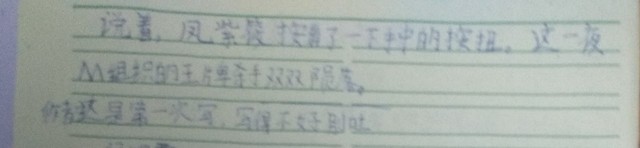 说着，凤紫筱按了一下手中的按扭。这一夜
M组织的王牌杀手双双陨落。
作者这是第一次写，写得不好别吐